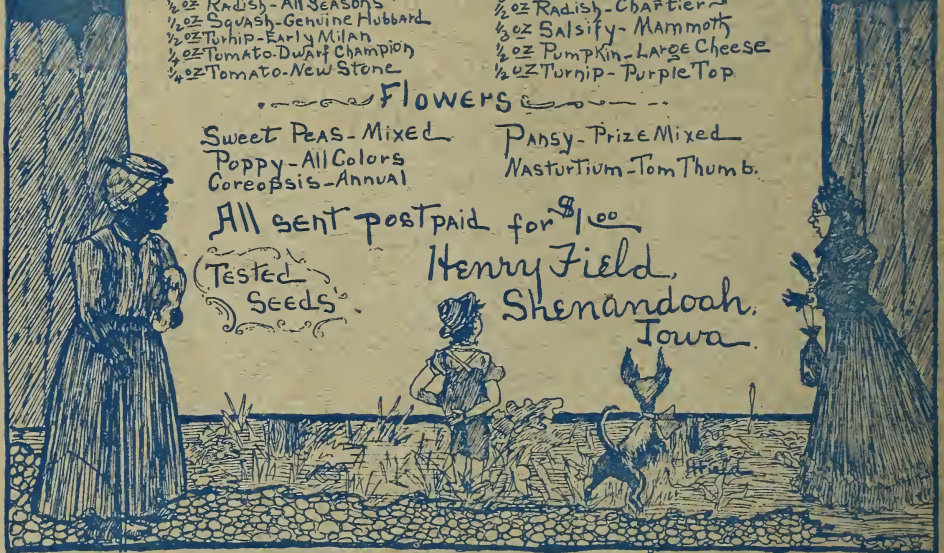 ½ oz Radish-All Seasons
½ oz Squash-Genuine Hubbard
½ oz Turnip-Early Milan
¼ oz Tomato-Dwarf Champion
¼ oz Tomato-New Stone
½ oz Radish-Chartier
½ oz Salsify-Mammoth
½ oz Pumpkin-Large Cheese
½ oz Turnip-Purple Top
Flowers
Sweet Peas-Mixed
Poppy-All Colors
Coreopsis-Annual
Pansy-Prize Mixed
Nasturtium-Tom Thumb.
All sent postpaid for $1.00
Tested
Seeds
Henry Field,
Shenandoah,
Iowa.